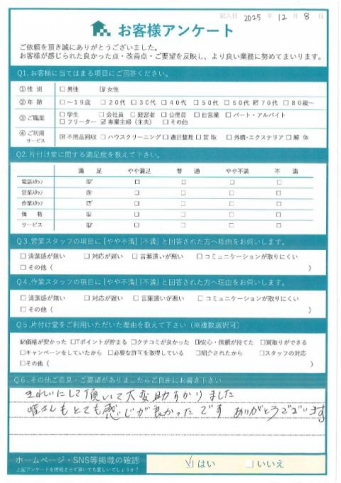 記入日 2025年 12月 8日
お客様アンケート
ご依頼を頂き誠にありがとうございました。
お客様が感じられた良かった点・改善点・ご要望を反映し、より良い業務に努めてまいります。
Q1. お客様に当てはまる項目にご回答ください。
① 性 別 □ 男性 ☑ 女性
② 年 齢 □ ~19歳 □ 20代 □ 30代 □ 40代 □ 50代 □ 60代 70代 □ 80歳~
③ ご職業 □ 学生 □ 会社員 □ 経営者 □ 公務員 □ 自営業 □ パート・アルバイト
□ フリーター ☑ 専業主婦(主夫) □ その他
④ ご利用サービス ☑ 不用品回収 □ ハウスクリーニング □ 遺品整理 □ 買取 □ 外構・エクステリア □ 解体
Q2. 片付け堂に関する満足度を教えて下さい。
満 足 やや満足 普 通 やや不満 不 満
電話対応 ☑ □ □ □ □
営業対応 ☑ □ □ □ □
作業対応 ☑ □ □ □ □
価 格 ☑ □ □ □ □
サービス ☑ □ □ □ □
Q3. 営業スタッフの項目に「やや不満」「不満」と回答された方へ理由をお伺いします。
□ 清潔感が無い □ 対応が遅い □ 言葉遣いが悪い □ コミュニケーションが取りにくい
□ その他( )
Q4. 作業スタッフの項目に「やや不満」「不満」と回答された方へ理由をお伺いします。
□ 清潔感が無い □ 対応が遅い □ 言葉遣いが悪い □ コミュニケーションが取りにくい
□ その他( )
Q5. 片付け堂をご利用いただいた理由を教えて下さい(※複数選択可)
☑ 価格が安かった □ Tポイントが貯まる □ クチコミが良かった □ 安心・信頼が持てた □ 買取りができる
□ キャンペーンをしていたから □ 必要な許可を取得している □ 紹介されたから □ スタッフの対応
□ その他( )
Q6. その他ご意見・ご要望がありましたらご自由にお書き下さい
きれいにして頂いて大変助かりました
皆さんもとても感じが良かったです ありがとうございます
ホームページ・SNS等掲載の確認
☑ はい □ いいえ